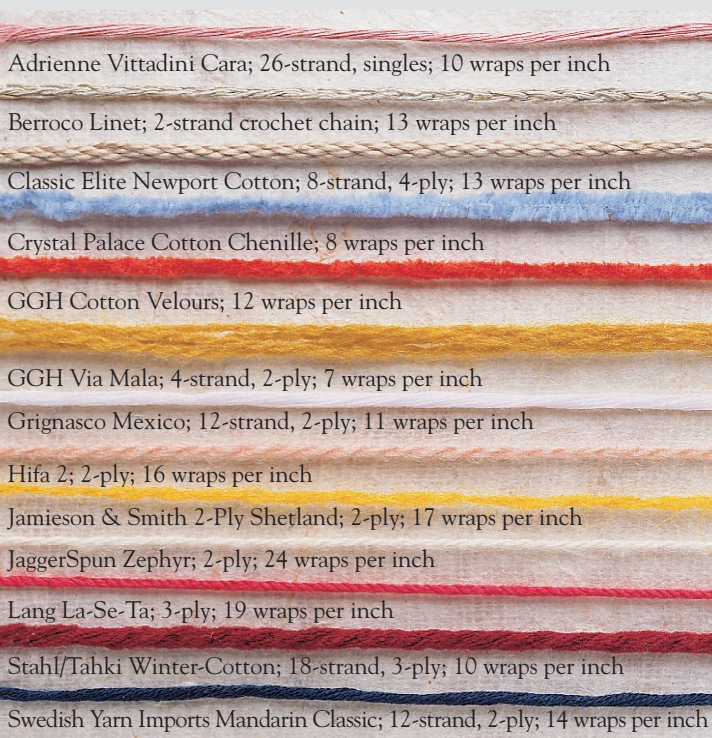 Adrienne Vittadini Cara; 26-strand, singles; 10 wraps per inch
Berroco Linet; 2-strand crochet chain; 13 wraps per inch
Classic Elite Newport Cotton; 8-strand, 4-ply; 13 wraps per inch
Crystal Palace Cotton Chenille; 8 wraps per inch
GGH Cotton Velours; 12 wraps per inch
GGH Via Mala; 4-strand, 2-ply; 7 wraps per inch
Grignasco Mexico; 12-strand, 2-ply; 11 wraps per inch
Hifa 2; 2-ply; 16 wraps per inch
Jamieson & Smith 2-Ply Shetland; 2-ply; 17 wraps per inch
JaggerSpun Zephyr; 2-ply; 24 wraps per inch
Lang La-Se-Ta; 3-ply; 19 wraps per inch
Stahl/Tahki Winter-Cotton; 18-strand, 3-ply; 10 wraps per inch
Swedish Yarn Imports Mandarin Classic; 12-strand, 2-ply; 14 wraps per inch